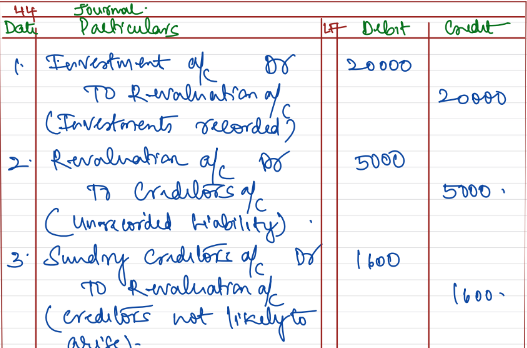 44 Journal.
Date Particulars LF Debit Credit
1. Investment a/c Dr 20000
To Revaluation a/c 20000
(Investments recorded)
2. Revaluation a/c Dr 5000
To Creditors a/c 5000.
(Unrecorded liability).
3. Sundry Creditors a/c Dr 1600
To Revaluation a/c 1600.
(Creditors not likely to
arise).